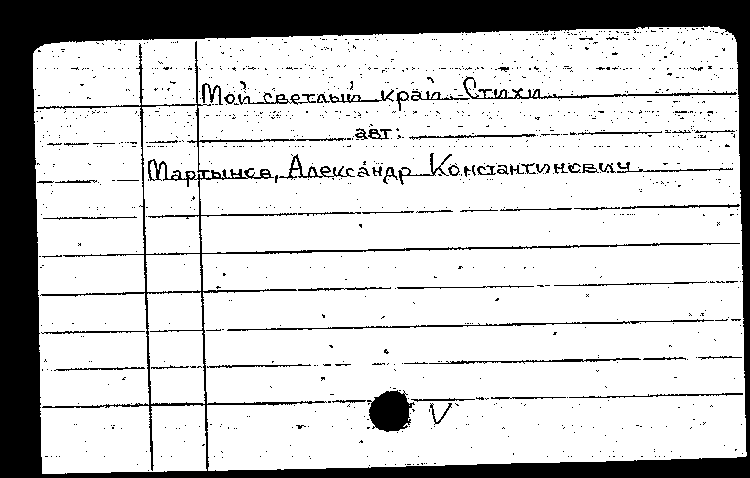 Мой светлый край. Стихи.
авт:
Мартынов, Александр Константинович.
V